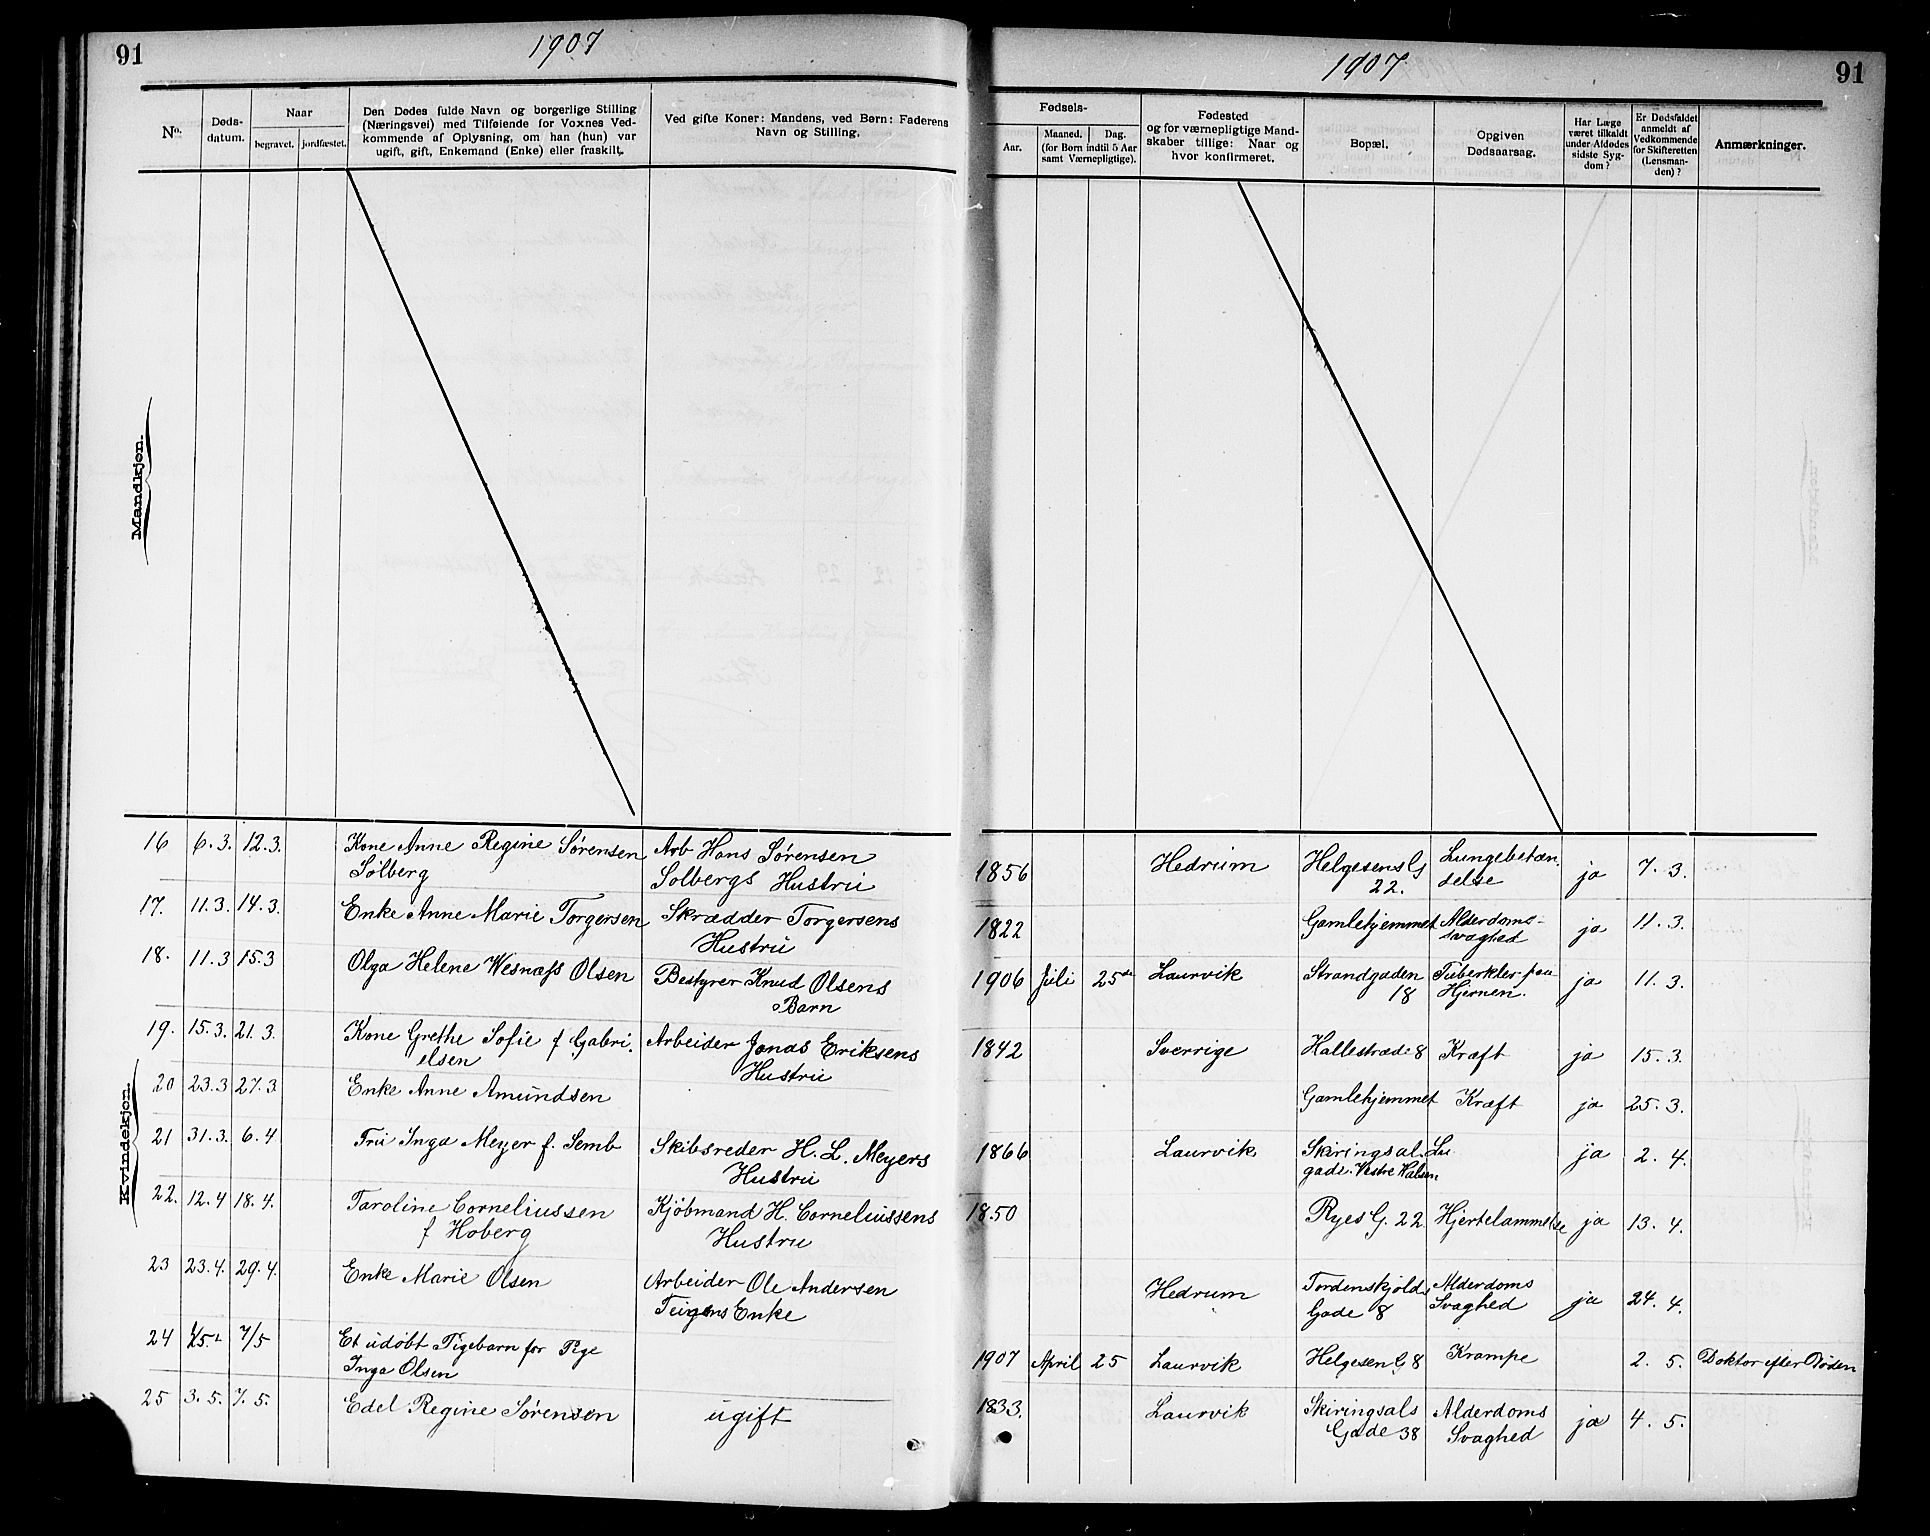 91
1907
1907
91
No.
Døds-
datum.
Naar
begravet. jordfæstet.
Den Dødes fulde Navn og borgerlige Stilling
(Næringsvei) med Tilføiende for Voxnes Ved-
kommende af Oplysning, om han (hun) var
ugift, gift, Enkemand (Enke) eller fraskilt.
Ved gifte Koner: Mandens, ved Børn: Faderens
Navn og Stilling.
Fødsels-
Aar.
Maaned. Dag.
(for Børn indtil 5 Aar
samt Værnepligtige).
Fødested
og for værnepligtige Mand-
skaber tillige: Naar og
hvor konfirmeret.
Bopæl.
Opgiven
Dødsaarsag.
Har Læge
været tilkaldt
under Afdødes
sidste Syg-
dom?
Er Dødsfaldet
anmeldt af
Vedkommende
for Skifteretten
(Lensman-
den)?
Anmærkninger.
Mandkjøn.
Kvindekjøn.
16 6.3. 12.3. Kone Anne Regine Sørensen Arb Hans Sørensen
Solberg Solbergs Hustru
1856 Hedrum Helgesens G Lungebetæn-
22. delse ja 7.3.
17. 11.3. 14.3. Enke Anne Marie Torgersen Skrædder Torgersens
Hustru
1822 Gamlehjemmet Alderdoms-
svaghed ja 11.3.
18. 11.3 15.3 Olga Helene Wesnæss Olsen Bestyrer Knud Olsens
Barn
1906 Juli 25de Laurvik Strandgaden Tuberkler paa
18 Hjernen. ja 11.3.
19. 15.3. 21.3. Kone Grethe Sofie f Gabri- Arbeider Jonas Eriksens
elsen Hustru
1842 Sverrige Hallestræde 8 Kræft ja 15.3.
20 23.3 27.3 Enke Anne Amundsen
Gamlehjemmet Kræft ja 25.3.
21 31.3. 6.4 Fru Inga Meyer f. Semb Skibsreder H. L. Meyers
Hustru
1866 Laurvik Skiringsal.
gade. Vestre Halsen ja 2.4.
22. 12.4 18.4. Caroline Corneliussen Kjøbmand H. Corneliussens
f Hoberg Hustru
1850 Ryes G. 22 Hjertelammelse ja 13.4.
23 23.4. 29.4. Enke Marie Olsen Arbeider Ole Andersen
Teigens Enke
Hedrum Tordenskjolds Alderdoms
Gade 8 Svaghed ja 24.4.
24 7/5 Et udøbt Pigebarn for Pige
Inga Olsen
1907 April 25 Laurvik Helgesen G 8 Krampe 2.5. Doktor efter Døden
25 3.5. 7.5. Edel Regine Sørensen ugift
1833. Laurvik Skiringsals Alderdoms
Gade 38 Svaghed ja 4.5.